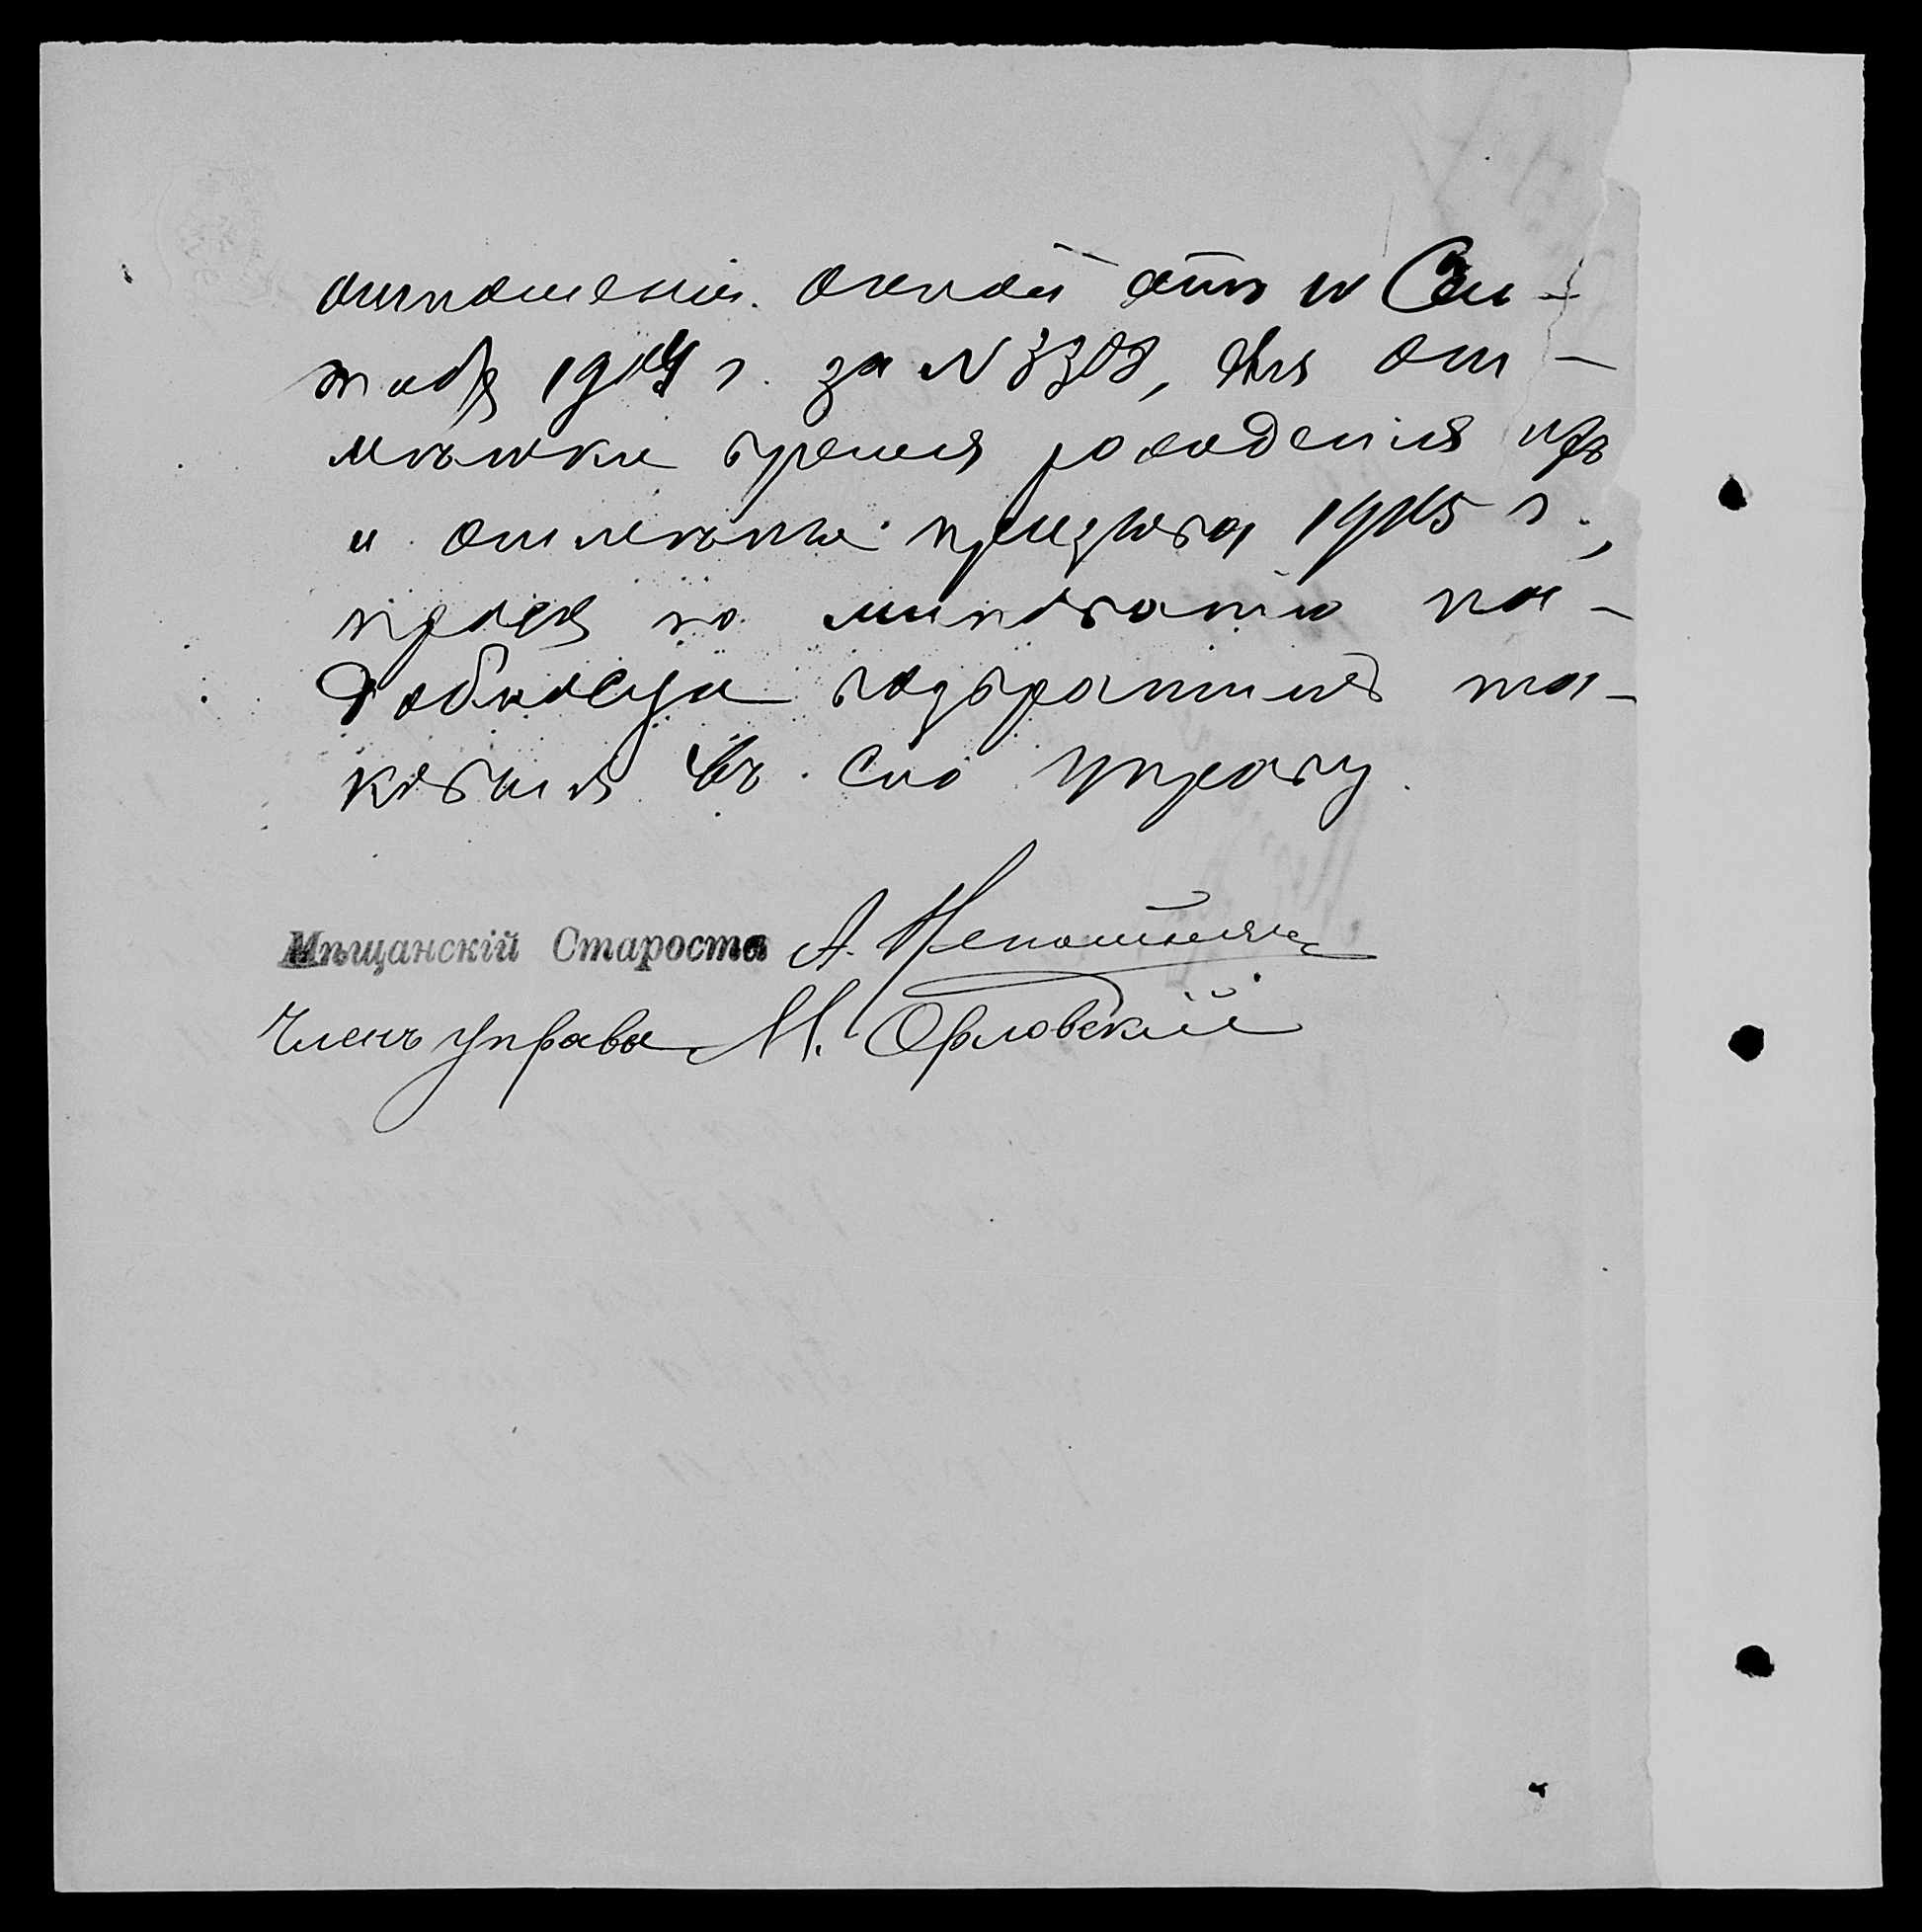 отношенія оной отъ 10 Сен-
тября 1914 г. за № 3308, для от-
мѣтки время рожденія ихъ
и отмѣтки призыва 1915 г.,
прося по минованіи на-
добности возвратить та-
ковыя въ сію управу.
Мѣщанскій Староста А.
Членъ управы М. Орловскій